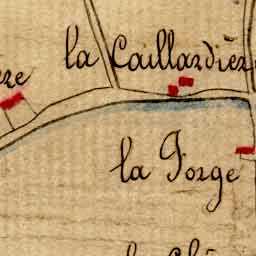 la Caillardièr
la Forge